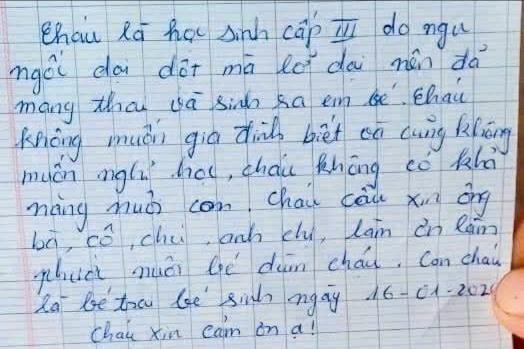 Cháu là học sinh cấp III do ngu
ngôi dại dốt mà lỡ dại nên đã
mang thai và sinh ra em bé. Cháu
không muốn gia đình biết và cũng không
muốn nghỉ học, cháu không có khả
năng nuôi con. Cháu cầu xin ông
bà, cô, chú, anh chị, làm ơn làm
phước nuôi bé dùm cháu. Con cháu
là bé trai bé sinh ngày 16-01-202
Cháu xin cảm ơn ạ!